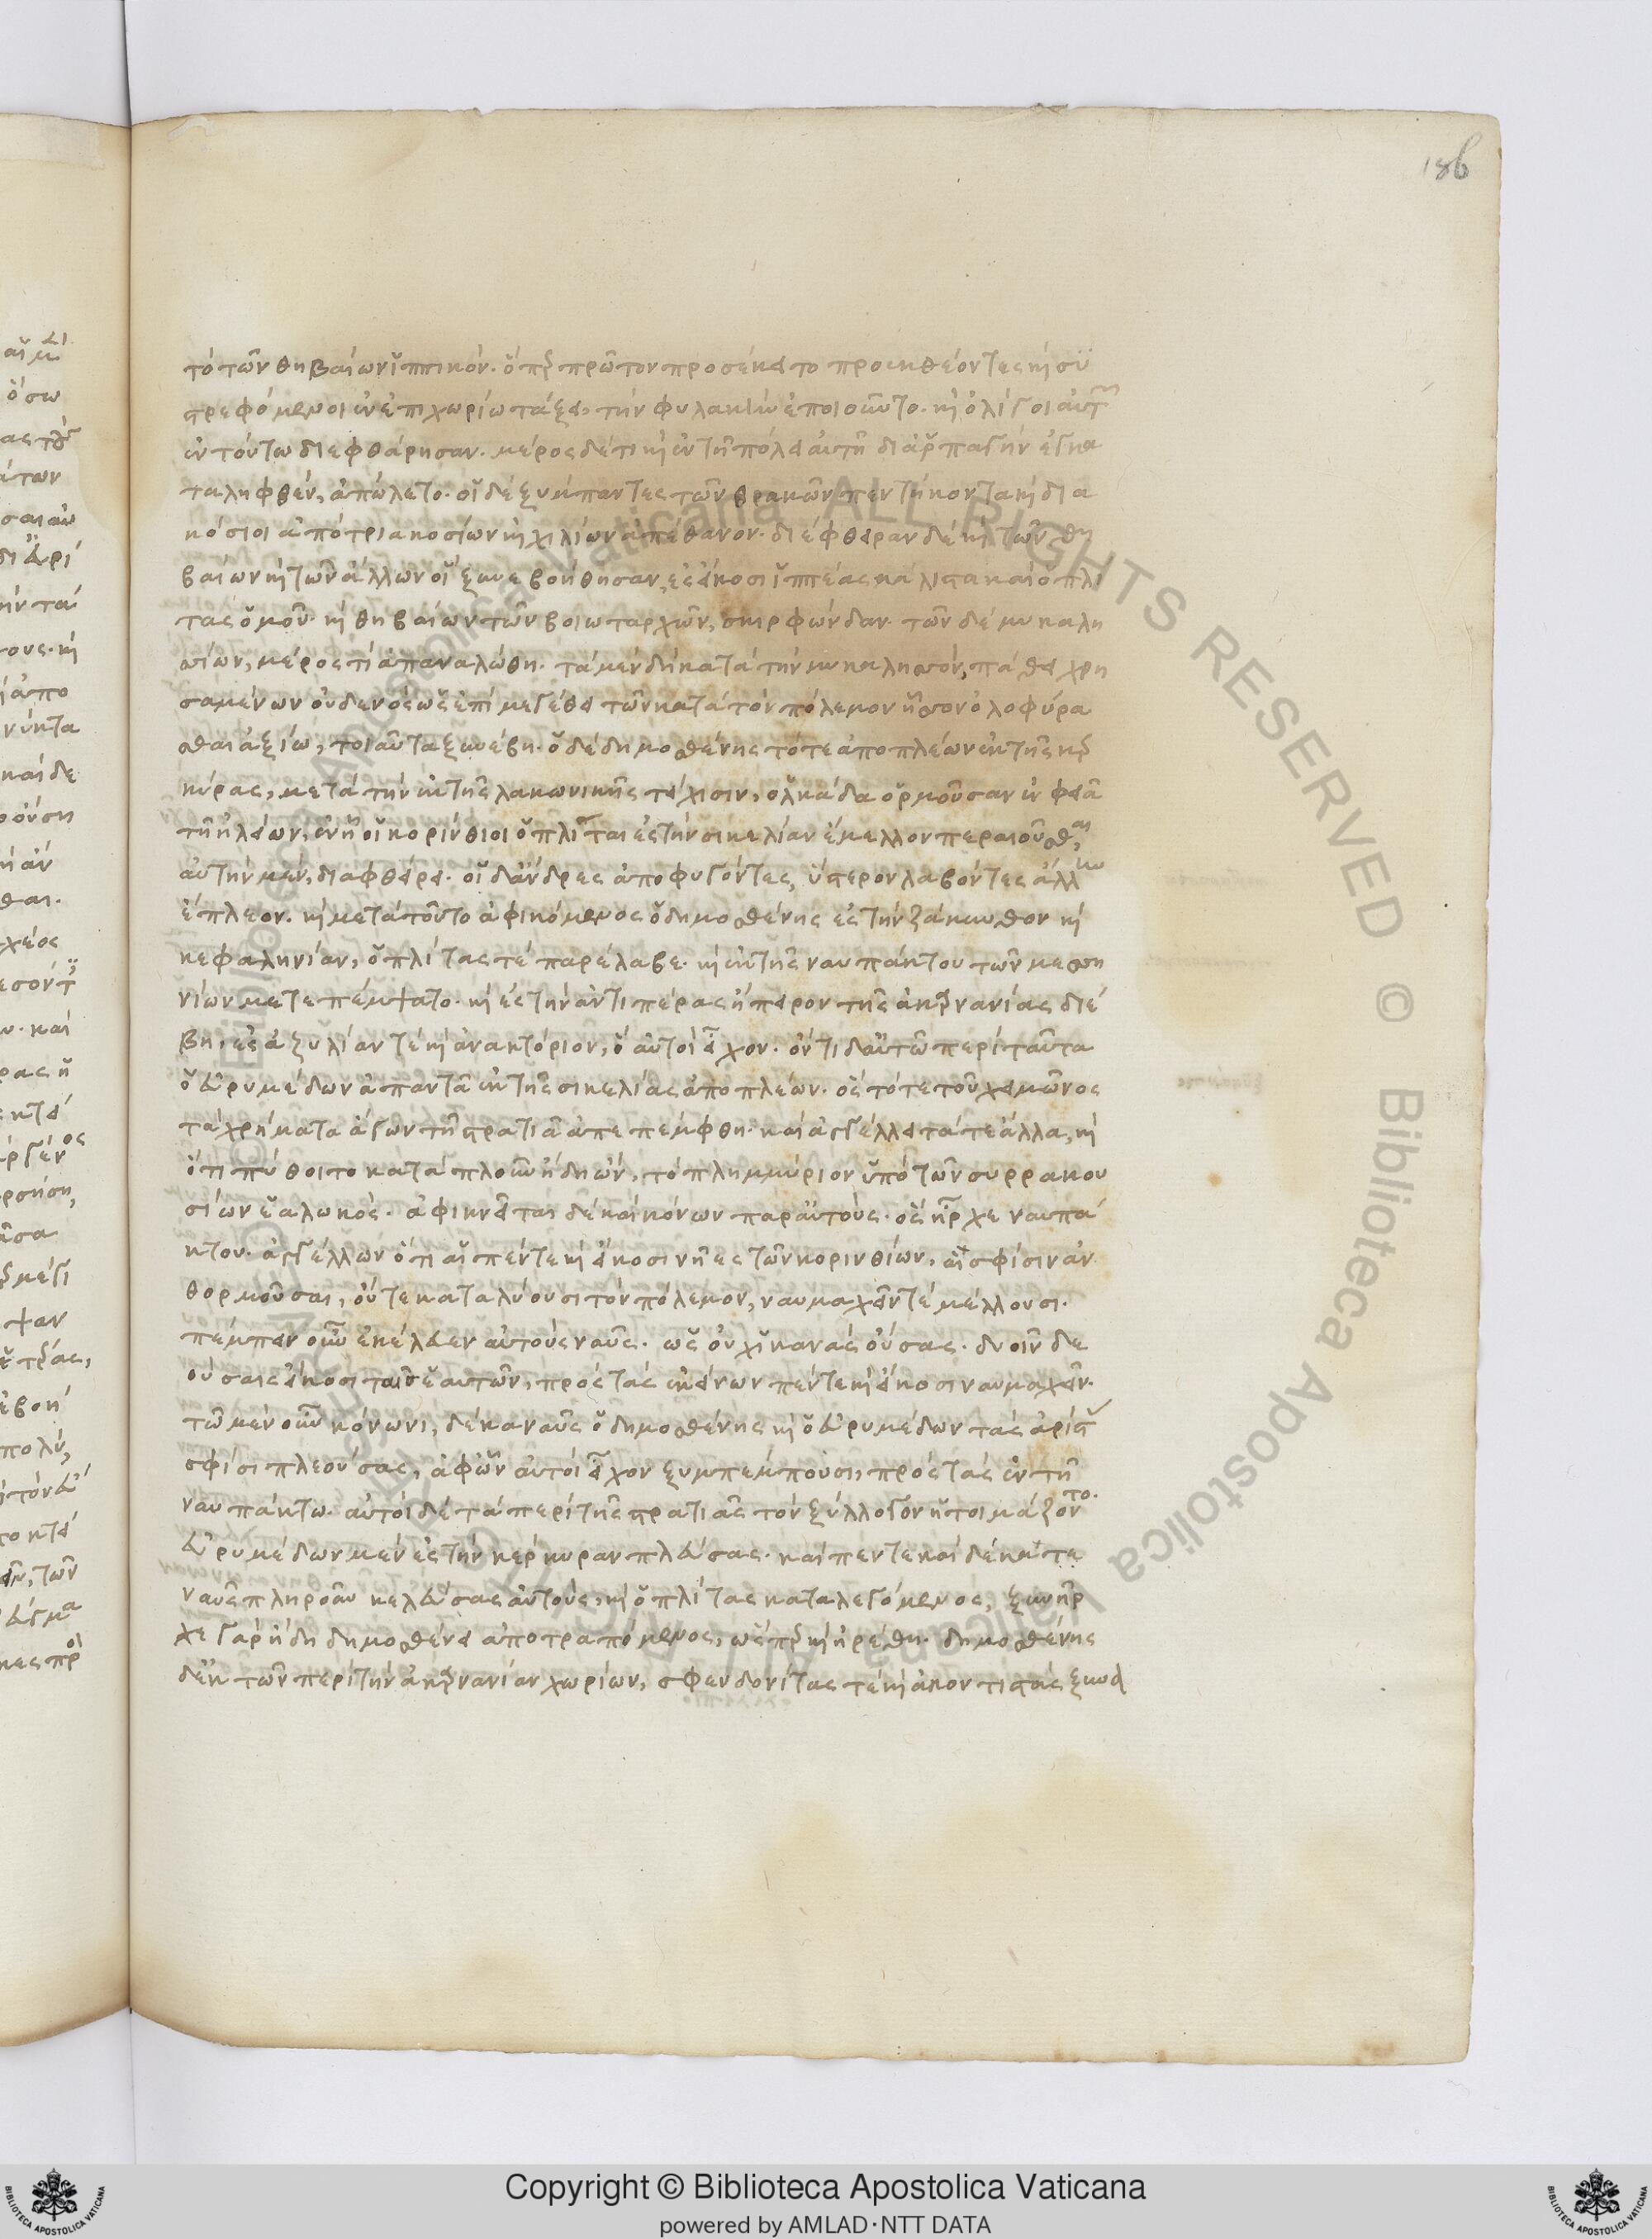 186
τὸ τῶν θηβαίων ἵππικὸν. ὅπερ πρῶτον προσέκειτο προεκθέοντες καὶ συ
στρεφόμενοι ἐν ἐπιχωρίω τάξει, τὴν φυλακὴν ἐποιοῦντο. καὶ ὀλίγοι αὐτῶν
ἐν τούτω διεφθάρησαν. μέρος δέ τι καὶ ἐν τῆ πόλει αὐτῆ δι ἁρπαγὴν ἐγκα
ταληφθὲν, ἀπώλετο. οἱ δὲ ξύμπαντες τῶν θρακῶν πεντήκοντα καὶ δια
κόσιοι ἀπὸ τριακοσίων καὶ χιλίων ἀπέθανον. διέφθειραν δὲ καὶ τῶν θη
βαίων καὶ τῶν ἄλλων οἳ ξυνεβοήθησαν, ἐς εἴκοσι ἵππέας μάλιστα καὶ ὁπλί
τας ὁμοῦ. καὶ θηβαίων τῶν βοιωταρχῶν, σκιρφώνδαν. τῶν δὲ μυκαλη
σίων, μέρος τὶ ἀπαναλώθη. τὰ μὲν δὴ κατὰ τὴν μυκαλησὸν, πάθει χρη
σαμένων οὐδενὸς ὡς ἐπὶ μεγέθει τῶν κατὰ τὸν πόλεμον ἧσσον ὀλοφύρα
σθαι ἀξίω, τοιαῦτα ξυνέβη. ὁ δὲ δημοσθένης τότε ἀποπλέων ἐκ τῆς κερ
κύρας, μετὰ τὴν ἐκ τῆς λακωνικῆς τείχισιν, ὁλκάδα ὁρμοῦσαν ἐν φειᾶ
τῆ ἠλείων, ἐν ἧ οἱ κορίνθιοι ὁπλῖται ἐς τὴν σικελίαν ἔμελλον περαιοῦσθαι,
αὐτὴν μὲν, διαφθείρει. οἱ δ ἄνδρες ἀποφυγόντες, ὕστερον λαβόντες ἄλλην
ἔπλεον. καὶ μετὰ τοῦτο ἀφικόμενος ὁ δημοσθένης ἐς τὴν ζάκυνθον καὶ
κεφαληνίαν, ὁπλίτας τὲ παρέλαβε. καὶ ἐκ τῆς ναυπάκτου τῶν μεσση
νίων μετεπέμψατο. καὶ ἐς τὴν ἀντιπέρας ἤπειρον τῆς ἀκαρνανίας διέ
βη, ἐς ἀζυλίαν τὲ καὶ ἀνακτόριον, ὃ αὐτοὶ εἶχον. ὄντι δ αὐτῶ περὶ ταῦτα
ὁ εὐρυμέδων ἀπαντᾶ ἐκ τῆς σικελίας ἀποπλέων. ὃς τότε τοῦ χειμῶνος
τὰ χρήματα ἄγων τῆ στρατιᾶ ἀπεπέμφθη. καὶ ἀγγέλλει τά τε ἄλλα, καὶ
ὅτι πύθοιτο κατὰ πλοῦν ἤδη ὢν, τὸ πλημμύριον ὑπὸ τῶν συρρακου
σίων ἑαλωκὸς. ἀφικνεῖται δὲ καὶ κόνων παρ αὐτοὺς. ὃς ἦρχε ναυπά
κτου. ἀγγέλλων ὅτι αἱ πέντε καὶ εἴκοσι νῆες τῶν κορινθίων, αἳ σφίσιν ἀν
θορμοῦσαι, οὔτε καταλύουσι τὸν πόλεμον, ναυμαχεῖν τὲ μέλλουσι.
πέμπειν οὖν ἐκέλευεν αὐτοὺς ναῦς. ὡς οὐχ ἱκανὰς οὔσας. δυοῖν δε
ούσαις εἴκοσι ταῖς ἑαυτῶν, πρὸς τὰς ἐκείνων πέντε καὶ εἴκοσι ναυμαχεῖν.
τῶ μὲν οὖν κόνωνι, δέκα ναῦς ὁ δημοσθένης καὶ ὁ εὐρυμέδων τὰς ἄριστα
σφίσι πλεούσας, ἀφ ὧν αὐτοὶ εἶχον ξυμπέμπουσι, πρὸς τὰς ἐν τῆ
ναυπάκτω. αὐτοὶ δὲ τὰ περὶ τῆς στρατιᾶς τὸν ξύλλογον ἡτοιμάζοντο.
εὐρυμέδων μὲν ἐς τὴν κέρκυραν πλεύσας. καὶ πεντεκαίδεκά τε
ναῦς πληροῦν κελεύσας αὐτοὺς, καὶ ὁπλίτας καταλεγόμενος, ξυνῆρ
χε γὰρ ἤδη δημοσθένει ἀποτραπόμενος, ὥσπερ καὶ ἡρέθη. δημοσθένης
δ ἐκ τῶν περὶ τὴν ἀκαρνανίαν χωρίων, σφενδονίτας τὲ καὶ ἀκοντιστὰς ξυνα
Copyright © Biblioteca Apostolica Vaticana
powered by AMLAD·NTT DATA